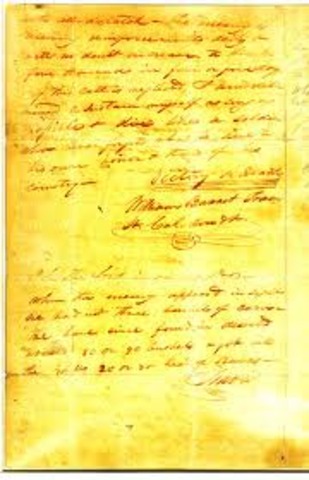 all dispatch - The enemy
receiving reinforcements daily &
will no doubt increase to three
four thousand in four or five days.
If this call is neglected, I am determined
to sustain myself as long as
possible & die like a soldier
who never forgets what is due to
his own honor & that of his
country -
Victory or Death
William Barret Travis
Lt. Col. comdt
P.S. The Lord is on our side -
When the enemy appeared in sight
we had not three bushels of corn -
We have since found in deserted
houses 80 or 90 bushels & got into
the 20 or 30 head of Beeves -
Travis